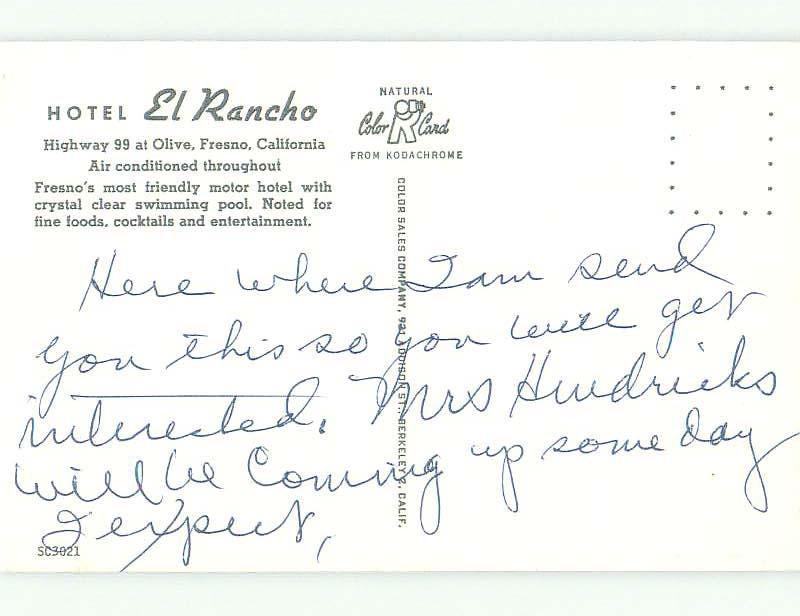 HOTEL El Rancho
Highway 99 at Olive, Fresno, California
Air conditioned throughout
Fresno's most friendly motor hotel with
crystal clear swimming pool. Noted for
fine foods, cocktails and entertainment.
NATURAL
Color Card
FROM KODACHROME
COLOR SALES COMPANY, 921 ADDISON ST., BERKELEY 2, CALIF.
Here where I am send
you this so you will get
interested. Mrs Hendricks
will be Coming up some day
I expect,
SC3021